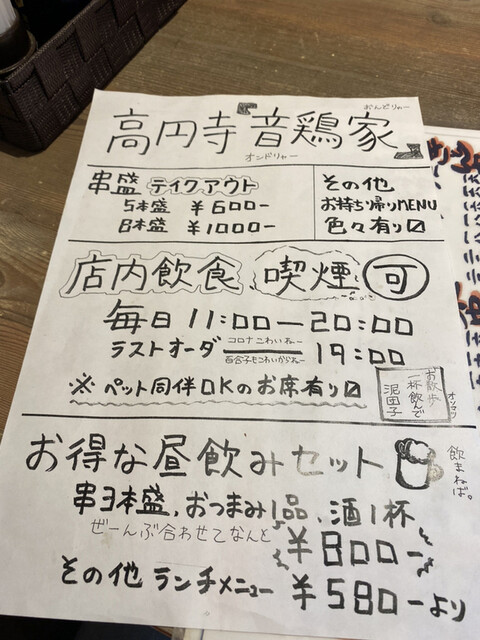 おんどりゃー
高円寺 音鶏家
オンドリャー
串盛 テイクアウト
5本盛 ¥600-
8本盛 ¥1000-
その他
お持ち帰りMENU
色々有り〼
店内飲食 喫煙 可
毎日 11:00ー20:00
コロナこわいねー
ラストオーダー 19:00
百合子もこわいからねー
※ ペット同伴OKのお席有り〼
お散歩
一杯飲んで
泥団子
オソマツ
お得な昼飲みセット
飲まねば。
串3本盛、おつまみ1品、酒1杯
ぜーんぶ合わせてなんと
¥800-
その他 ランチメニュー ¥580-より